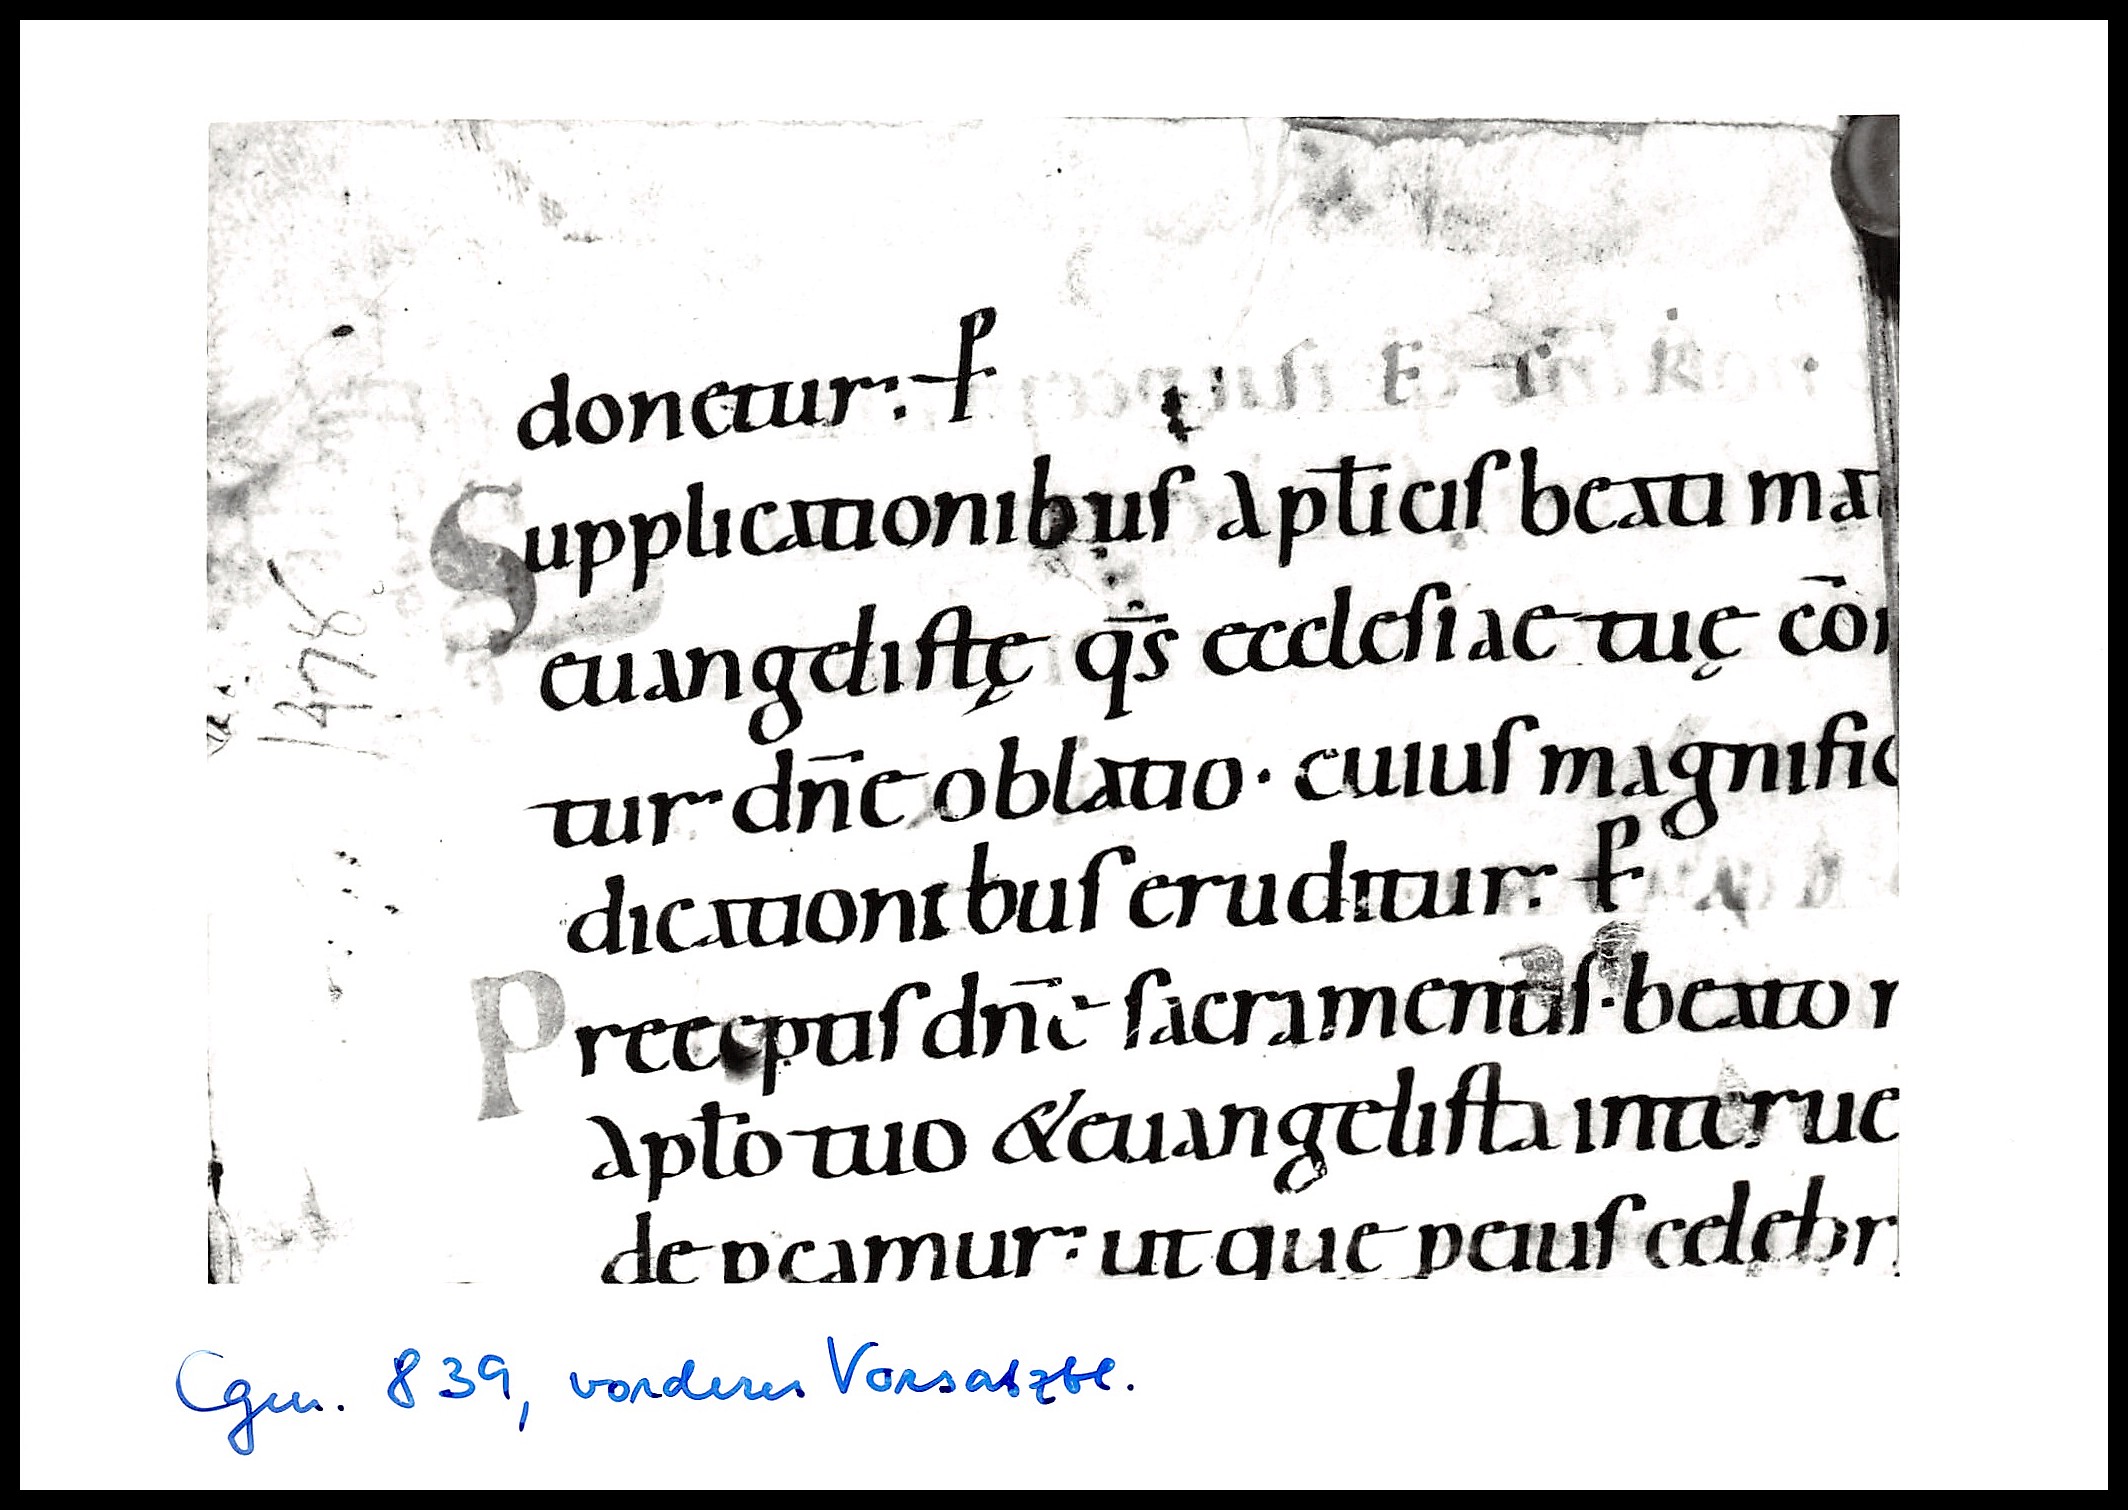 donetur: P
Supplicationibus aptłicis beati mat
euangelistę qs̄ ecclesiae tuę cōm
tur dn̄e oblatio · cuius magnific
dicationibus eruditur: P
Preceptis dn̄e sacramentis · beato
aptło tuo & euangelista interue
deprecamur: ut que
1478
Cgm. 839, vorderes Vorsatzbl.